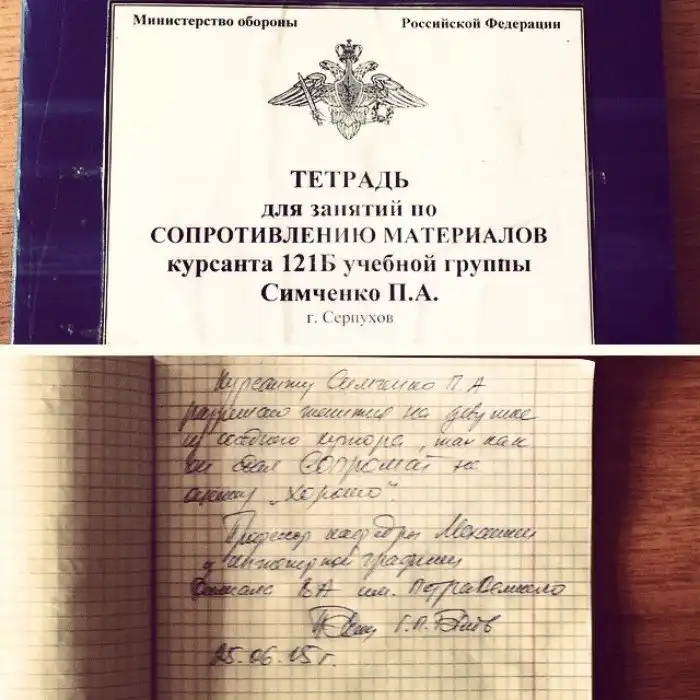 Министерство обороны Российской Федерации
ТЕТРАДЬ
для занятий по
СОПРОТИВЛЕНИЮ МАТЕРИАЛОВ
курсанта 121Б учебной группы
Симченко П.А.
г. Серпухов
Курсанту Симченко П.А
разрешаю жениться на девушке
из соседнего хутора, так как
он сдал Сопромат на
оценку „Хорошо".
Профессор кафедры Механики
и инженерной графики
филиала ВА им. Петра Великого
Г.П.
25.06.15г.